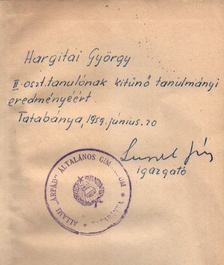 Hargitai György
III. oszt. tanulónak kitünő tanulmányi
eredményéért
Tatabánya, 1959. június. 20
igazgató
ÁLLAMI "ÁRPÁD" ÁLTALÁNOS GIM
TATABÁNYA